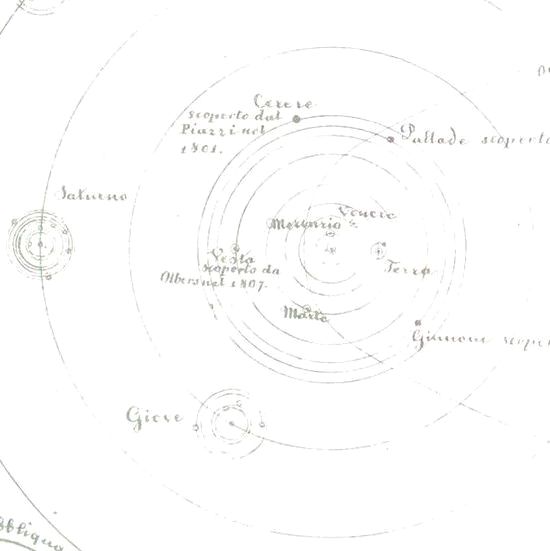 Cerere
scoperto dal
Piazzi nel
1801.
Pallade scoperto
Saturno
Venere
Mercurio
Vesta
scoperto da
Olbers nel 1807.
Terra
Marte
Giunone scope
Giove
Obliqua